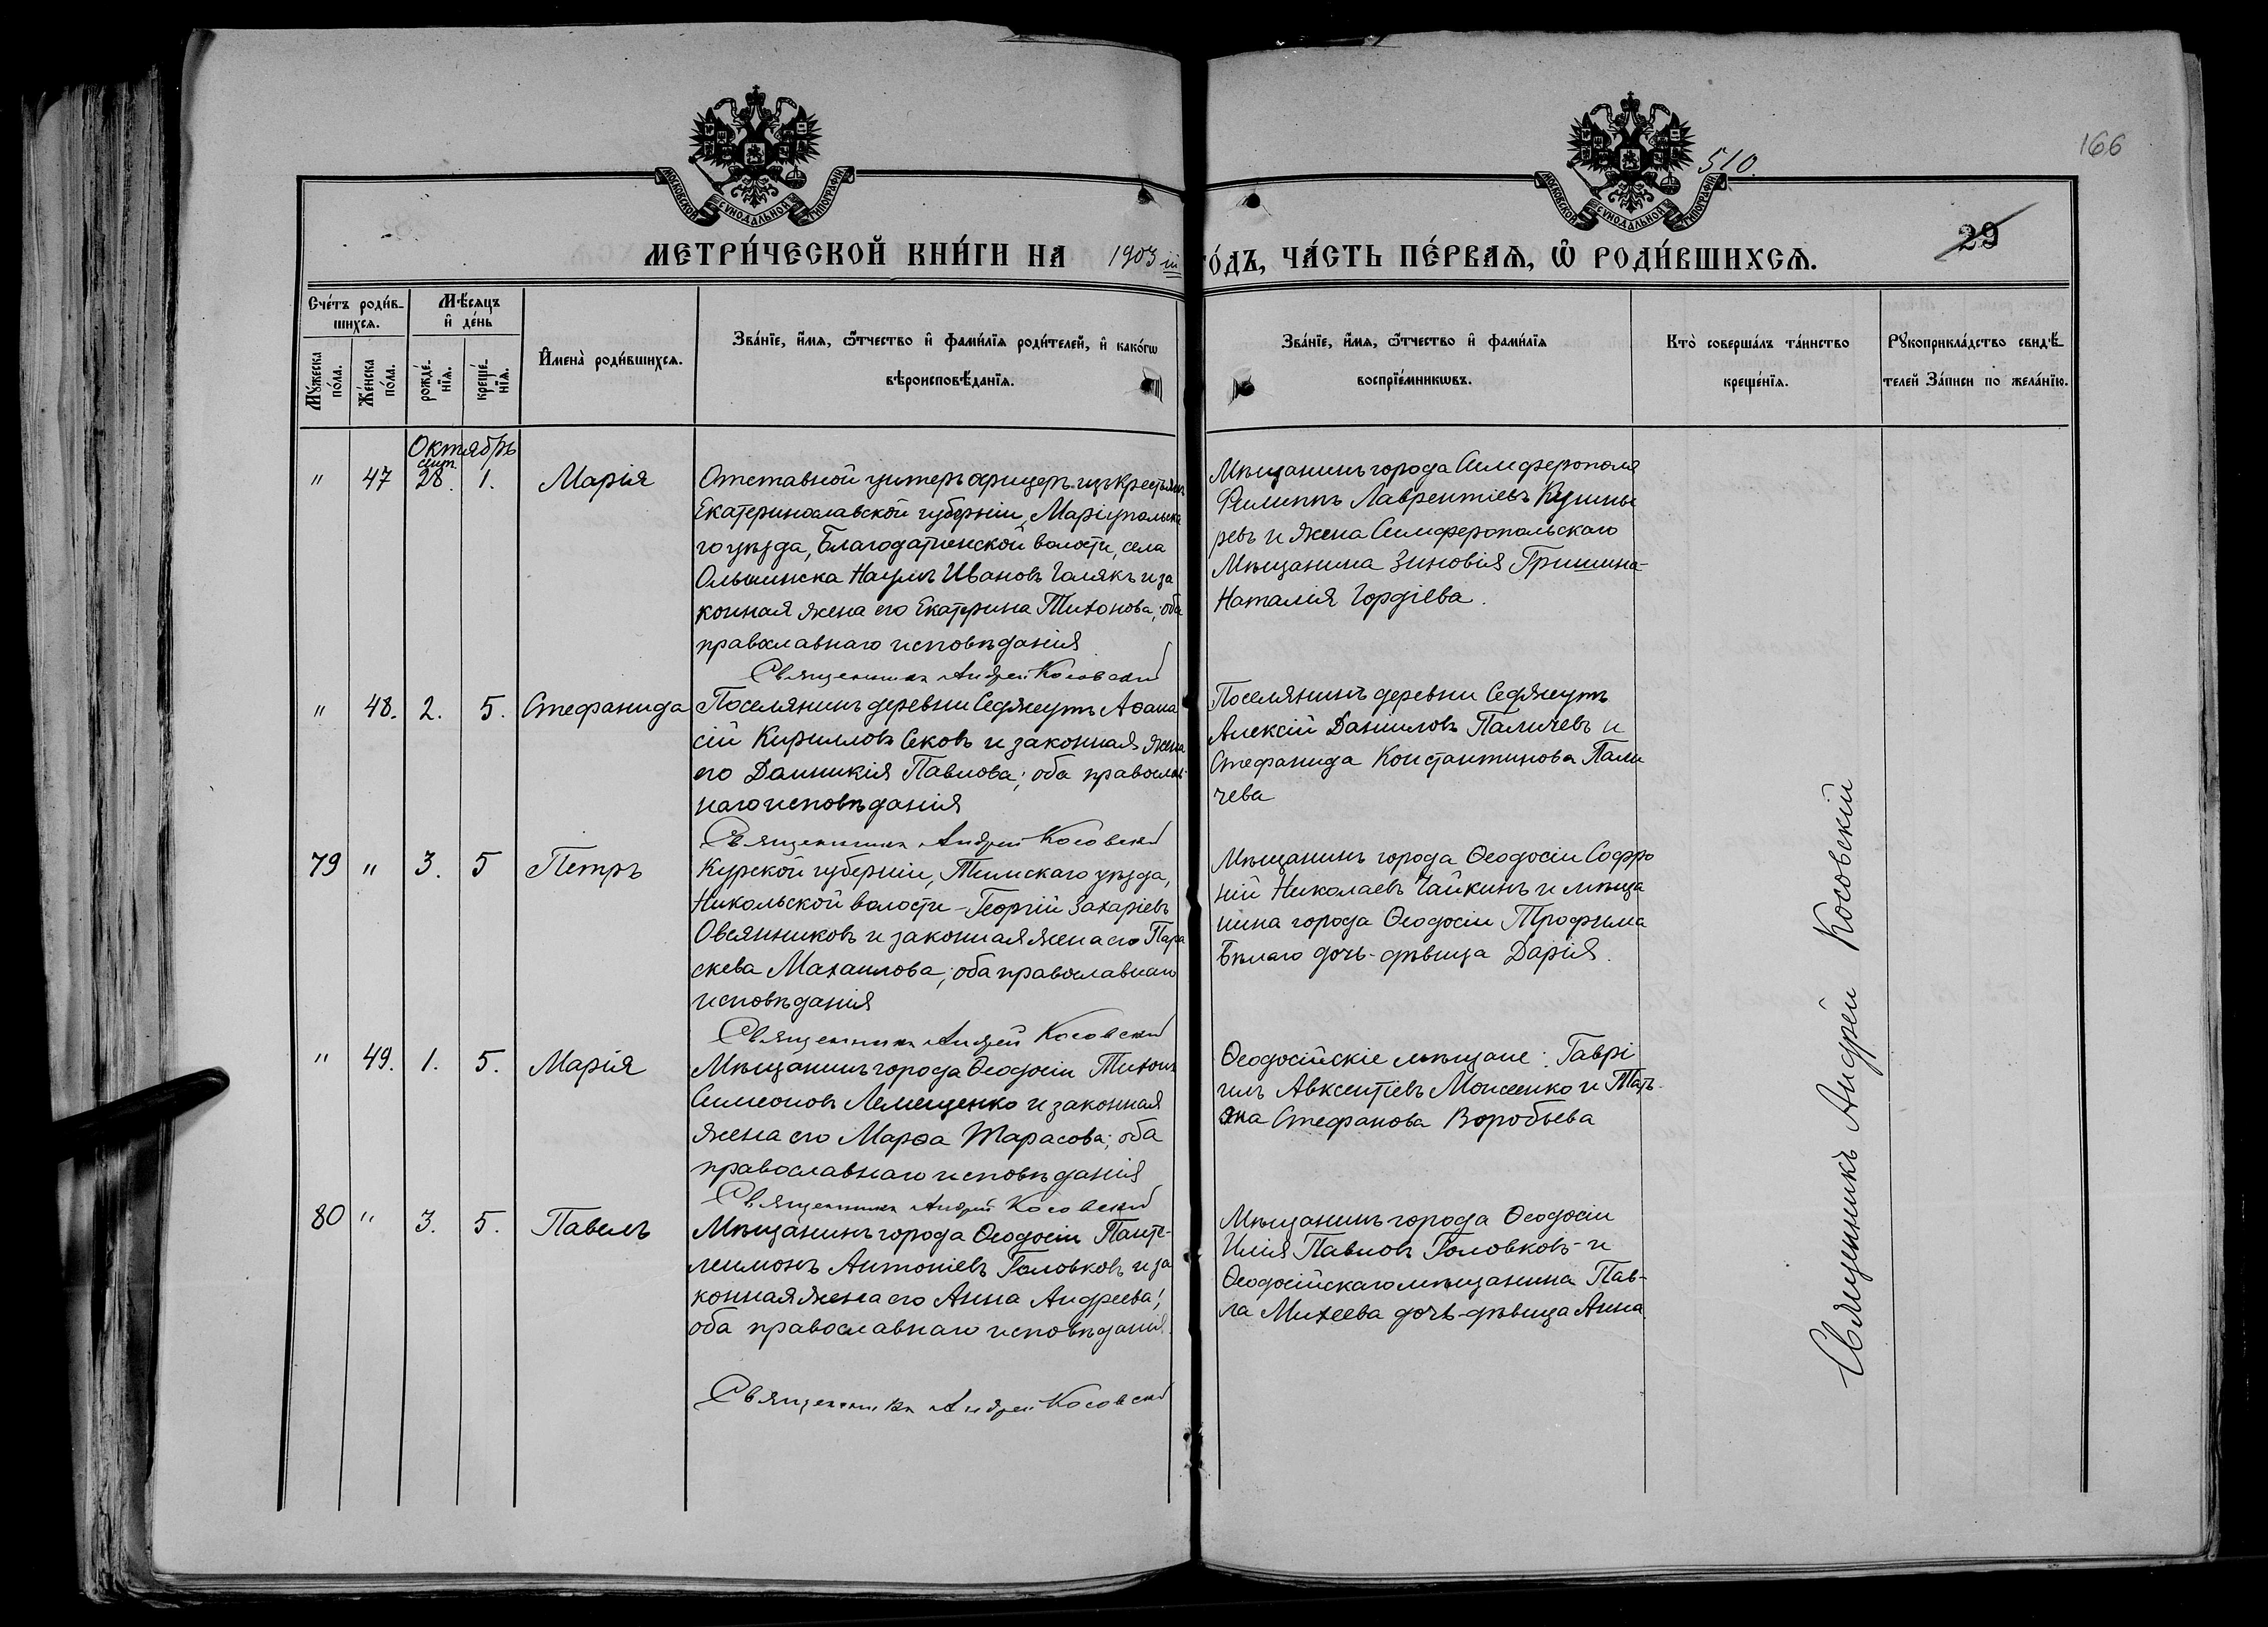 МОСКОВСКОЙ СУНОДАЛЬНОЙ ТИПОГРАФІИ
МОСКОВСКОЙ СУНОДАЛЬНОЙ ТИПОГРАФІИ
510.
166
29
МЕТРИ́ЧЕСКОЙ КНИ́ГИ НА 1903 й
О́ДЪ, ЧА́СТЬ ПЕ́РВАѦ, Ѡ҆ РОДИ́ВШИХСѦ.
Сче́тъ роди́в-
шихсѧ.
Мѣ́сѧцъ
и҆ де́нь
Мꙋ́жеска
по́ла.
Же́нска
по́ла.
рожде́-
нїѧ.
креще́-
нїѧ.
И҆мена̀ роди́вшихсѧ.
Зва́нїе, и҆́мѧ, ѻ҆́тчество и҆ фами́лїѧ роди́телей, и҆ како́гѡ
вѣроисповѣ́данїѧ.
Зва́нїе, и҆́мѧ, ѻ҆́тчество и҆ фами́лїѧ
воспрїе́мникѡвъ.
Кто̀ соверша́лъ та́инство
креще́нїѧ.
Рꙋкоприкла́дство свидѣ́-
телей За́писи по жела́нїю.
Октябрь
" 47 сент. 28. 1. Марія
Отставной унтеръ офицеръ изъ крестьянъ
Екатеринославской губерніи, Маріупольска
го уѣзда, Благодатненской волости, села
Ольгинска Наумъ Ивановъ Голякъ и за
конная жена его Екатерина Тихонова; оба
православнаго исповѣданія
Священникъ Андрей Косовскій
Мѣщанинъ города Симферополя
Филиппъ Лаврентіевъ
ревъ и жена Симферопольскаго
Мѣщанина Зиновія Гришина-
Наталія Гордіева.
" 48. 2. 5. Стефанида
Поселянинъ деревни Седжеутъ Аѳана
сій Кирилловъ Сековъ и законная жена
его Домникія Павлова; оба православ-
наго исповѣданія
Священникъ Андрей Косовскій
Поселянинъ деревни Седжеутъ
Алексій Даніиловъ Паличевъ и
Стефанида Константинова Пали
чева
79 " 3. 5 Петръ
Курской губерніи, Тимскаго уѣзда,
Никольской волости - Георгій Захаріевъ
Овсянниковъ и законная жена его Пара
скева Махаилова; оба православнаго
исповѣданія
Священникъ Андрей Косовскій
Мѣщанинъ города Ѳеодосіи Софро
ній Николаевъ Чайкинъ и мѣща
нина города Ѳеодосіи Трофима
Бѣлаго дочь-дѣвица Дарія.
" 49. 1. 5. Марія
Мѣщанинъ города Ѳеодосіи Тихонъ
Симеоновъ Лемещенко и законная
жена его Марѳа Тарасова; оба
православнаго исповѣданія
Священникъ Андрей Косовскій
Ѳеодосійскіе мѣщане: Гаврі
илъ Авксентіевъ Моисеенко и Тать-
яна Стефанова Воробьева
80 " 3. 5. Павелъ
Мѣщанинъ города Ѳеодосіи Панте-
леимонъ Антоніевъ Головковъ и за
конная жена его Анна Андреева;
оба православнаго исповѣданія.
Священникъ Андрей Косовскій
Мѣщанинъ города Ѳеодосіи
Илія Павловъ Головковъ - и
Ѳеодосійскаго мѣщанина Пав-
ла Михеева дочь-дѣвица Анна.
Священникъ Андрей Косовскій